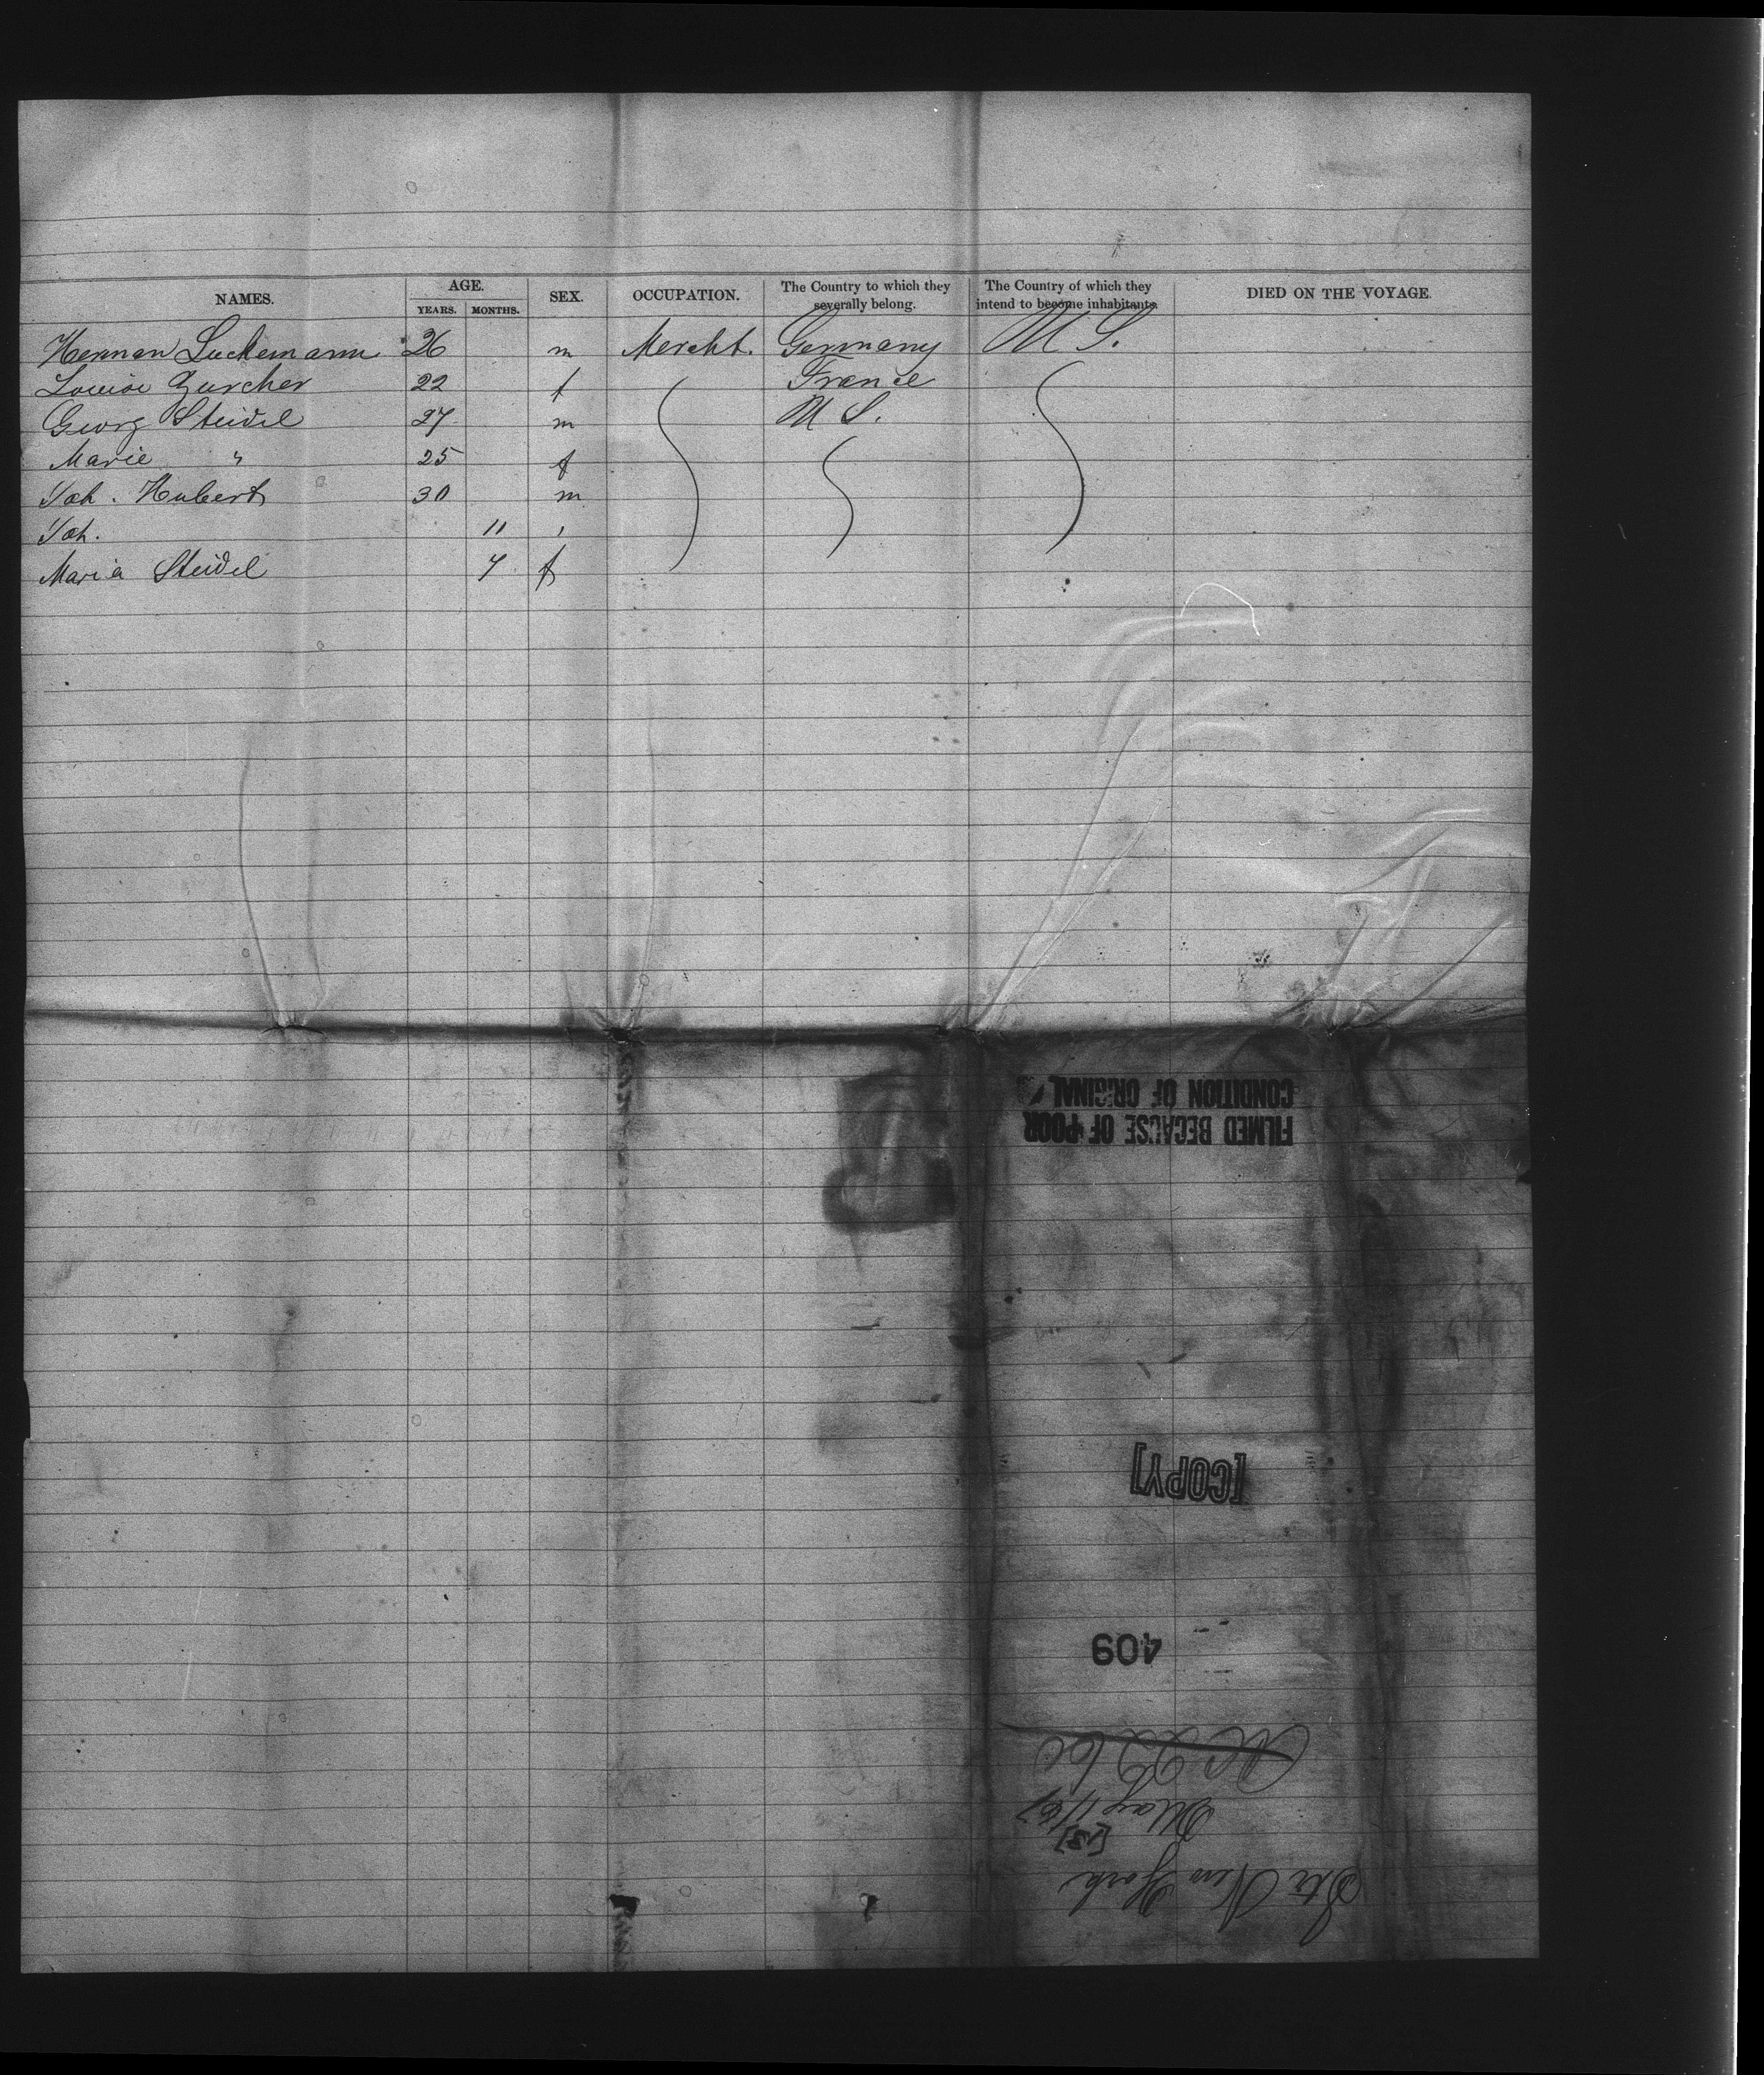 NAMES. AGE. SEX. OCCUPATION. The Country to which they severally belong. The Country of which they intend to become inhabitants. DIED ON THE VOYAGE.
YEARS. MONTHS.
Herman Luckemann 26 m Mercht. Germany U S.
Louise Zurcher 22 f France
Georg Steidel 27 m U S.
Marie " 25 f
Joh. Hubert 30 m
Joh. 11 "
Maria Steidel 7 f
Str New York
[18]
May 11/67
409
[COPY]
FILMED BECAUSE OF POOR
CONDITION OF ORIGINAL